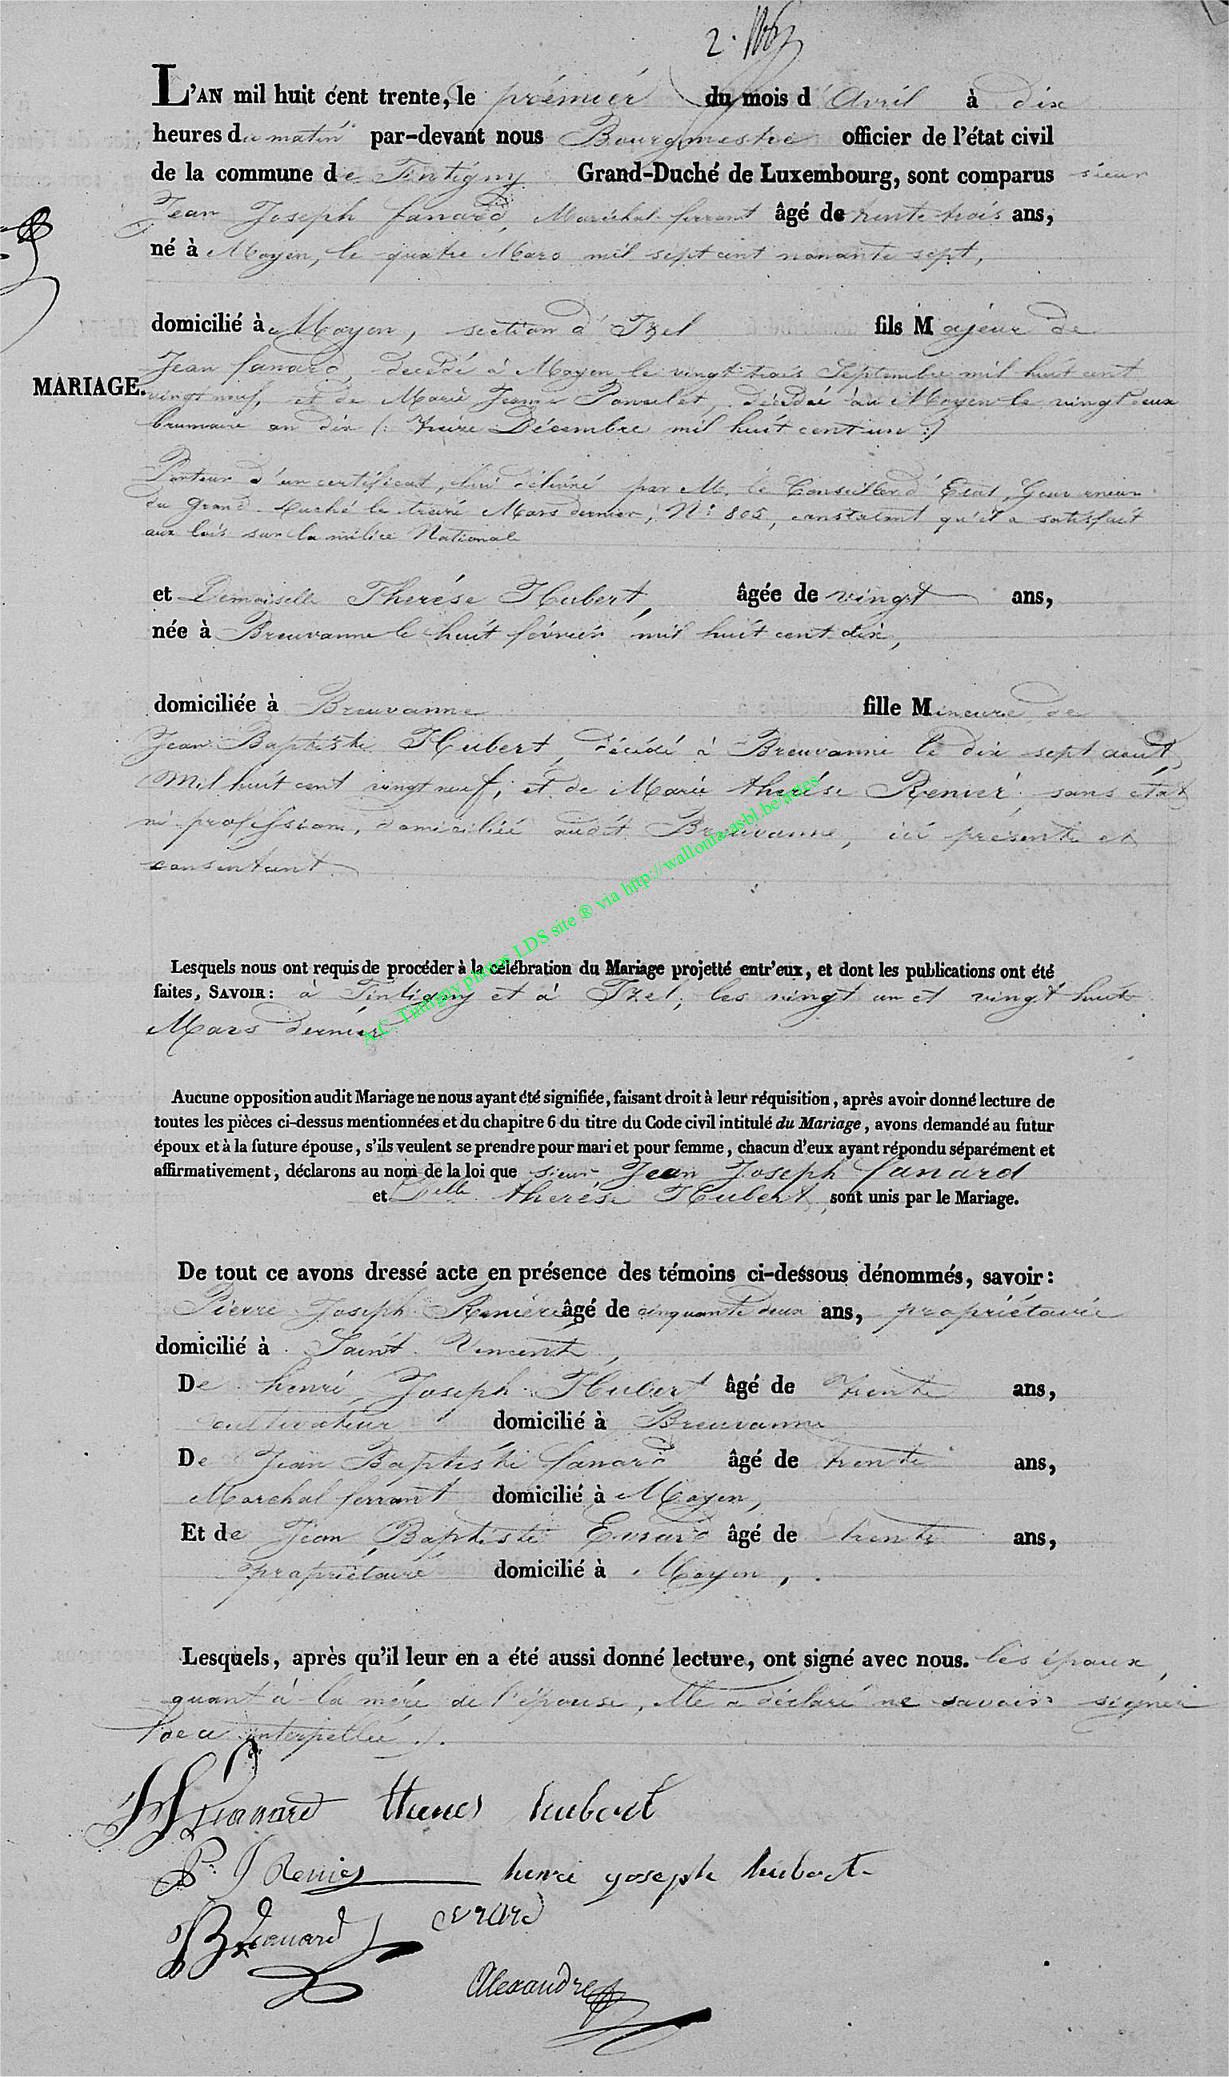 2.
L'AN mil huit cent trente, le prémiér du mois d'Avril à dix
heures du matin par-devant nous Bourgmestre officier de l'état civil
de la commune de Tintigny Grand-Duché de Luxembourg, sont comparus sieur
Jean Joseph fanard, Maréchal ferrant âgé de trente trois ans,
né à Moyen, le quatre Mars mil sept cent nonante sept,
domicilié à Moyen, section d'Izel fils Majeur de
Jean fanard, décédé à Moyen le vingt trois Septembre mil huit cent
MARIAGE.
vingt neuf, et de Marie Jeanne Poncelet, décédée au Moyen le vingt deux
brumaire an dix (: treize Décembre mil huit cent un :)
Porteur d'un certificat, lui délivré par M. le Conseiller d'Etat, Gouverneur
du Grand-Duché le treize Mars dernier, N° 805, constatant qu'il a satisfait
aux lois sur la milice Nationale
et Demoiselle Thérése Hubert, âgée de vingt ans,
née à Breuvanne le huit février mil huit cent dix,
domiciliée à Breuvanne fille Mineure de
Jean Baptiste Hubert, décédé à Breuvanne le dix sept aout
Mil huit cent vingt neuf, et de Marie thérése Reniér, sans état
ni profession, domiciliée audit Breuvanne, ici présente et
consentant
Lesquels nous ont requis de procéder à la célébration du Mariage projetté entr'eux, et dont les publications ont été
faites, SAVOIR: à Tintigny et à Izel, les vingt un et vingt huit
Mars dernier
A.C. Tintigny photos LDS site ® via http://wallonia-asbl.be/actes
Aucune opposition audit Mariage ne nous ayant été signifiée, faisant droit à leur réquisition, après avoir donné lecture de
toutes les pièces ci-dessus mentionnées et du chapitre 6 du titre du Code civil intitulé du Mariage, avons demandé au futur
époux et à la future épouse, s'ils veulent se prendre pour mari et pour femme, chacun d'eux ayant répondu séparément et
affirmativement, déclarons au nom de la loi que sieur Jean Joseph fanard
et Delle thérése Hubert, sont unis par le Mariage.
De tout ce avons dressé acte en présence des témoins ci-dessous dénommés, savoir:
Pierre Joseph Reniére âgé de cinquante deux ans, propriétaire
domicilié à Saint Vincent,
De henri Joseph Hubert âgé de trente ans,
cultivateur domicilié à Breuvanne
De Jean Baptiste fanard âgé de trente ans,
Marchal ferrant domicilié à Moyen,
Et de Jean Baptiste Evrard âgé de trente ans,
propriétaire domicilié à Moyen,
Lesquels, après qu'il leur en a été aussi donné lecture, ont signé avec nous. les époux,
quant à la mére de l'épouse, elle a déclaré ne savoir signér
de ce interpellée
fanard hubert
P. J Renier henri joseph hubert
B fanard evrard
Alexandre